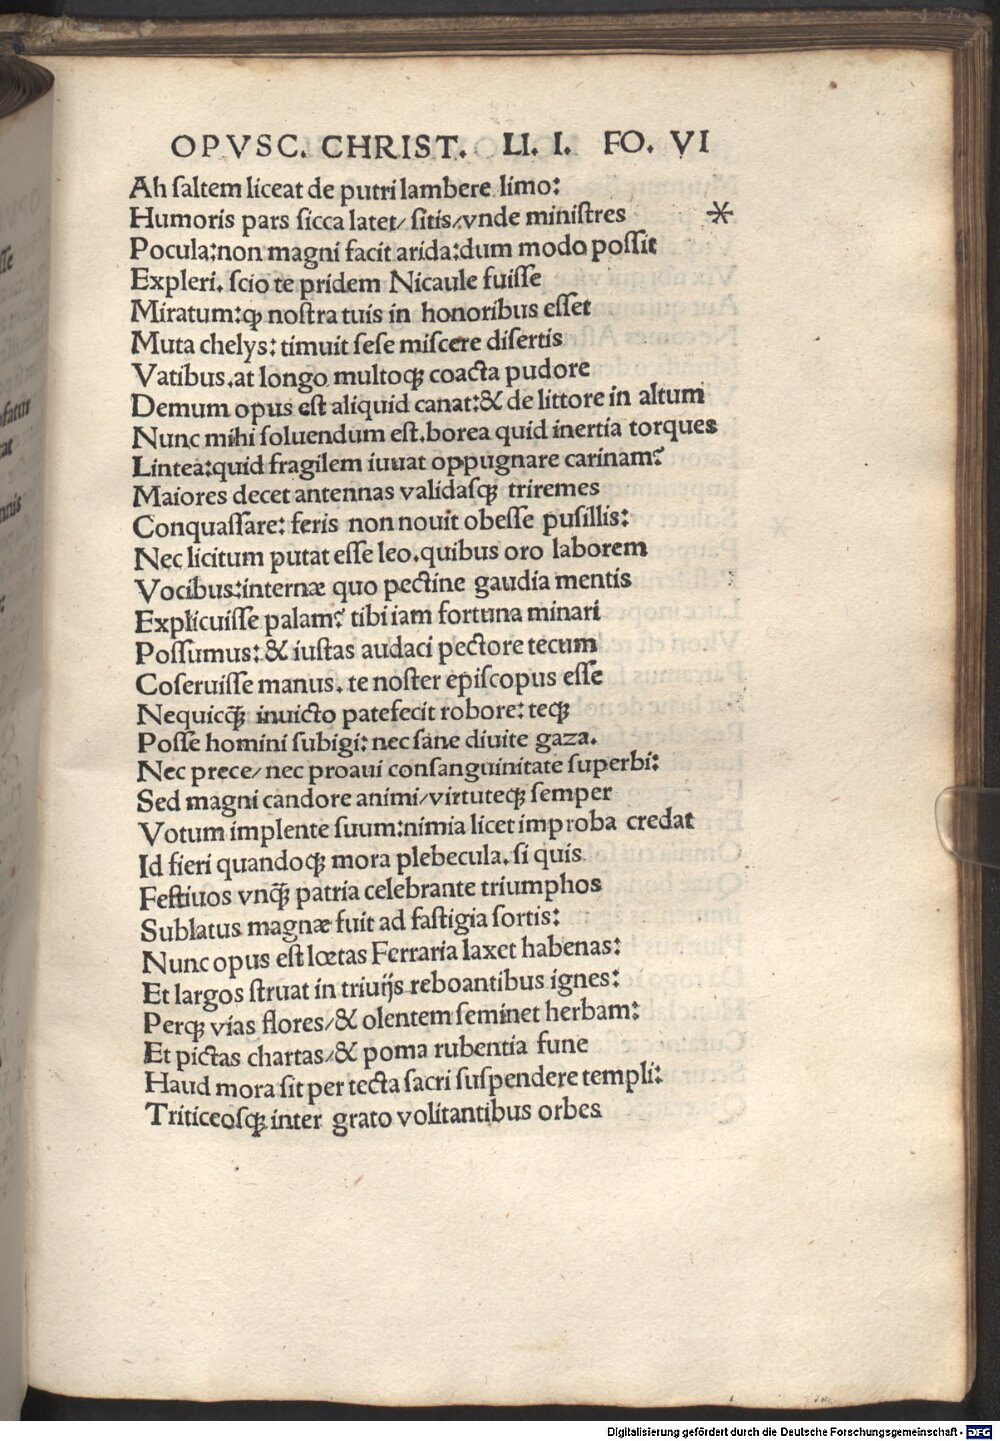 OPVSC. CHRIST. LI. I. FO. VI
Ah ſaltem liceat de putri lambere limo:
Humoris pars ſicca latet/ ſitis/ vnde miniſtres *
Pocula: non magni facit arida: dum modo poſſit
Expleri. ſcio te pridem Nicaule fuiſſe
Miratum: ꝙ noſtra tuis in honoribus eſſet
Muta chelys: timuit ſeſe miſcere diſertis
Vatibus. at longo multoqꝫ coacta pudore
Demum opus eſt aliquid canat: & de littore in altum
Nunc mihi ſoluendum eſt. borea quid inertia torques
Lintea: quid fragilem iuuat oppugnare carinam?
Maiores decet antennas validaſqꝫ triremes
Conquaſſare: feris non nouit obeſſe puſillis:
Nec licitum putat eſſe leo. quibus oro laborem
Vocibus: internæ quo pectine gaudia mentis
Explicuiſſe palam? tibi iam fortuna minari
Poſſumus: & iuſtas audaci pectore tecum
Coſeruiſſe manus. te noſter epiſcopus eſſe
Nequicq̃ꝫ inuicto patefecit robore: teqꝫ
Poſſe homini ſubigi: nec ſane diuite gaza.
Nec prece/ nec proaui conſanguinitate ſuperbi:
Sed magni candore animi/ virtuteqꝫ ſemper
Votum implente ſuum: nimia licet improba credat
Id fieri quandoqꝫ mora plebecula. ſi quis
Feſtiuos vnq̃ꝫ patria celebrante triumphos
Sublatus magnæ fuit ad faſtigia ſortis:
Nunc opus eſt lœtas Ferraria laxet habenas:
Et largos ſtruat in triuijs reboantibus ignes:
Perqꝫ vias flores/ & olentem ſeminet herbam:
Et pictas chartas/ & poma rubentia fune
Haud mora ſit per tecta ſacri ſuſpendere templi:
Triticeoſqꝫ inter grato volitantibus orbes
Digitalisierung gefördert durch die Deutsche Forschungsgemeinschaft - DFG